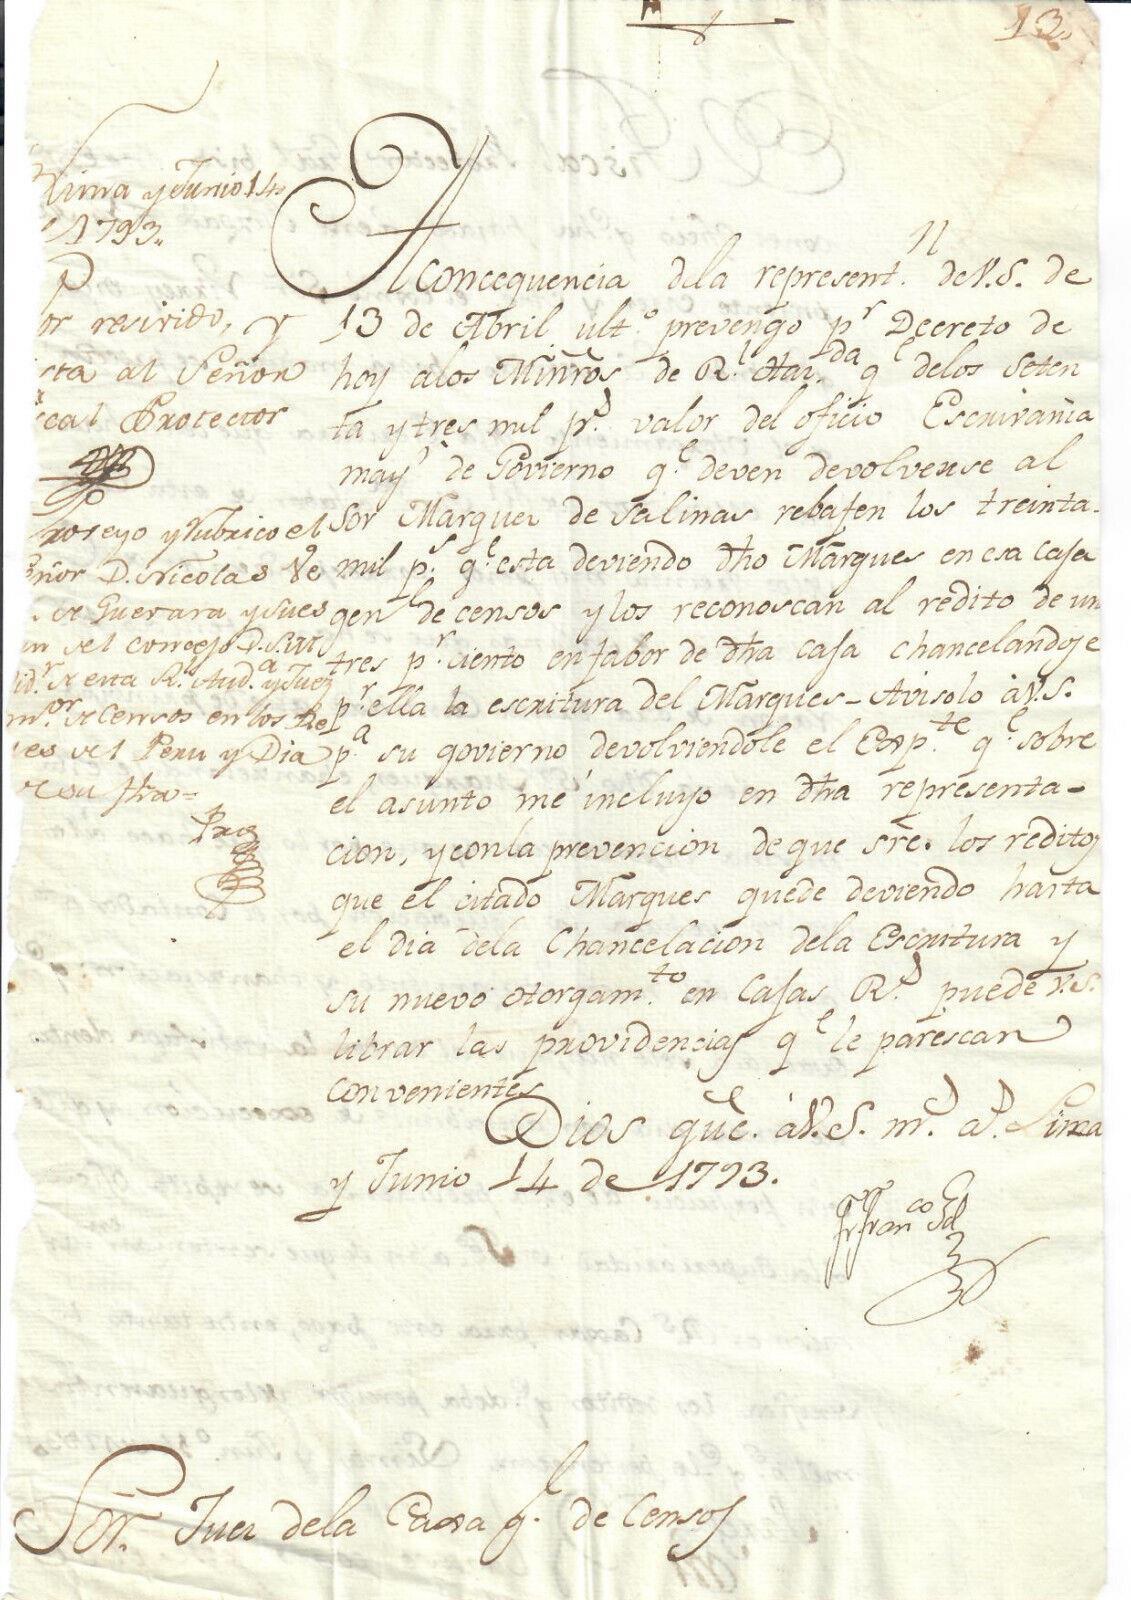 13.
Lima y Junio 14
1793..
por resivido, y
al Señor
Protector
Proveyo y Rubrico el
Señor D. Nicolas Ve
de Guevara y Sues
del Concejo D. S. M.
de esta Rl. Aud.a y Juez
m.or de Censos en los Re
del Peru y Dia
de su fha =
A concequencia dela represent.n de V.S. de
13 de Abril ult.o prevengo pr Decreto de
hoy alos Minrõs de Rl. Haz.da qe delos seten
ta y tres mil ps. valor del oficio Escrivania
mayr de Govierno qe. deven devolverse al
Sor Marquez de Salinas rebajen los treinta
mil ps. qe. esta deviendo dho Marques en esa Caja
genl. de censos y los reconoscan al redito de un
tres pr. ciento en fabor de dha caja chancelandose
pr. ella la escritura del Marques - Avisolo à V.S.
pa. su govierno devolviendole el Exp.te qe. sobre
el asunto me incluyo en dha representa-
cion, y con la prevencion de que sre. los reditos
que el citado Marques quede deviendo hasta
el dia dela Chancelacion dela Escritura y
su nuevo otorgam.to en Cajas Rs. puede V.S.
librar las providencias qe le parescan
convenientes
Dios gue. à V.S. ms. as. Lima
y Junio 14 de 1793.
Fr. Fran.co Gil
Sor. Juez dela Caxa gl. de Censos